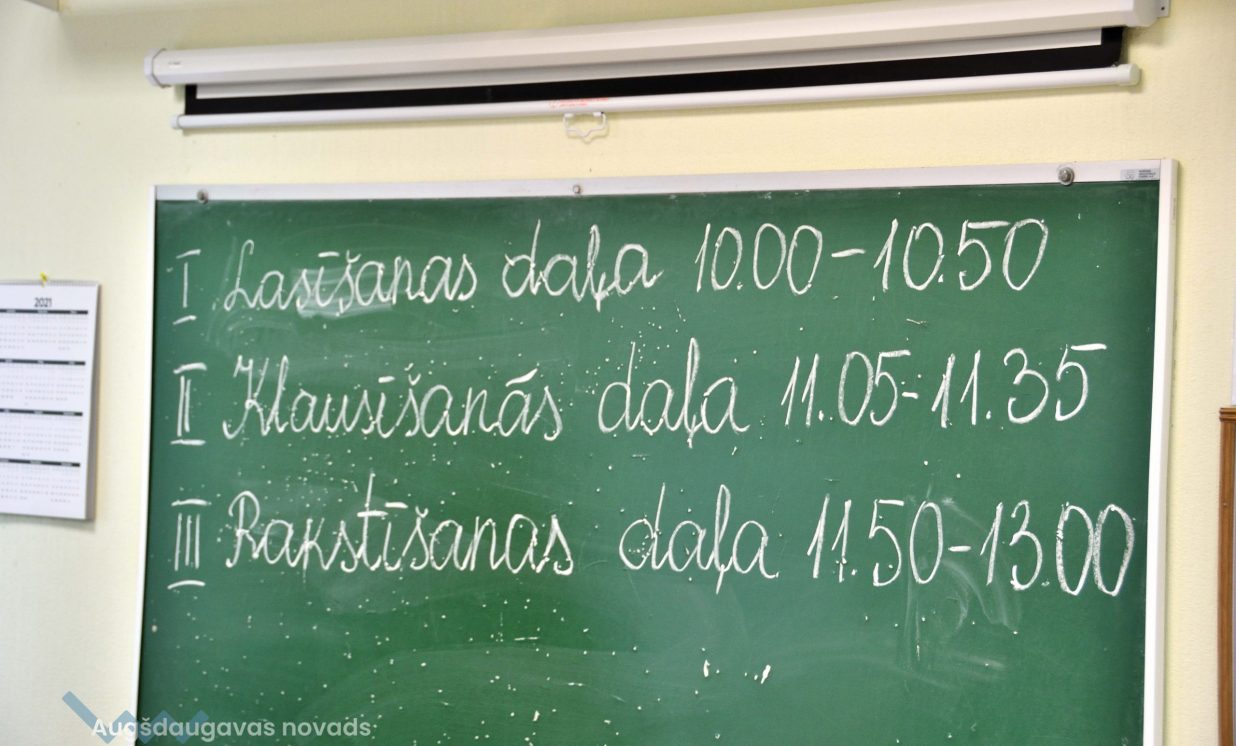 2021
I Lasīšanas daļa 10.00-10.50
II Klausīšanās daļa 11.05-11.35
III Rakstīšanas daļa 11.50-13.00
Augšdaugavas novads